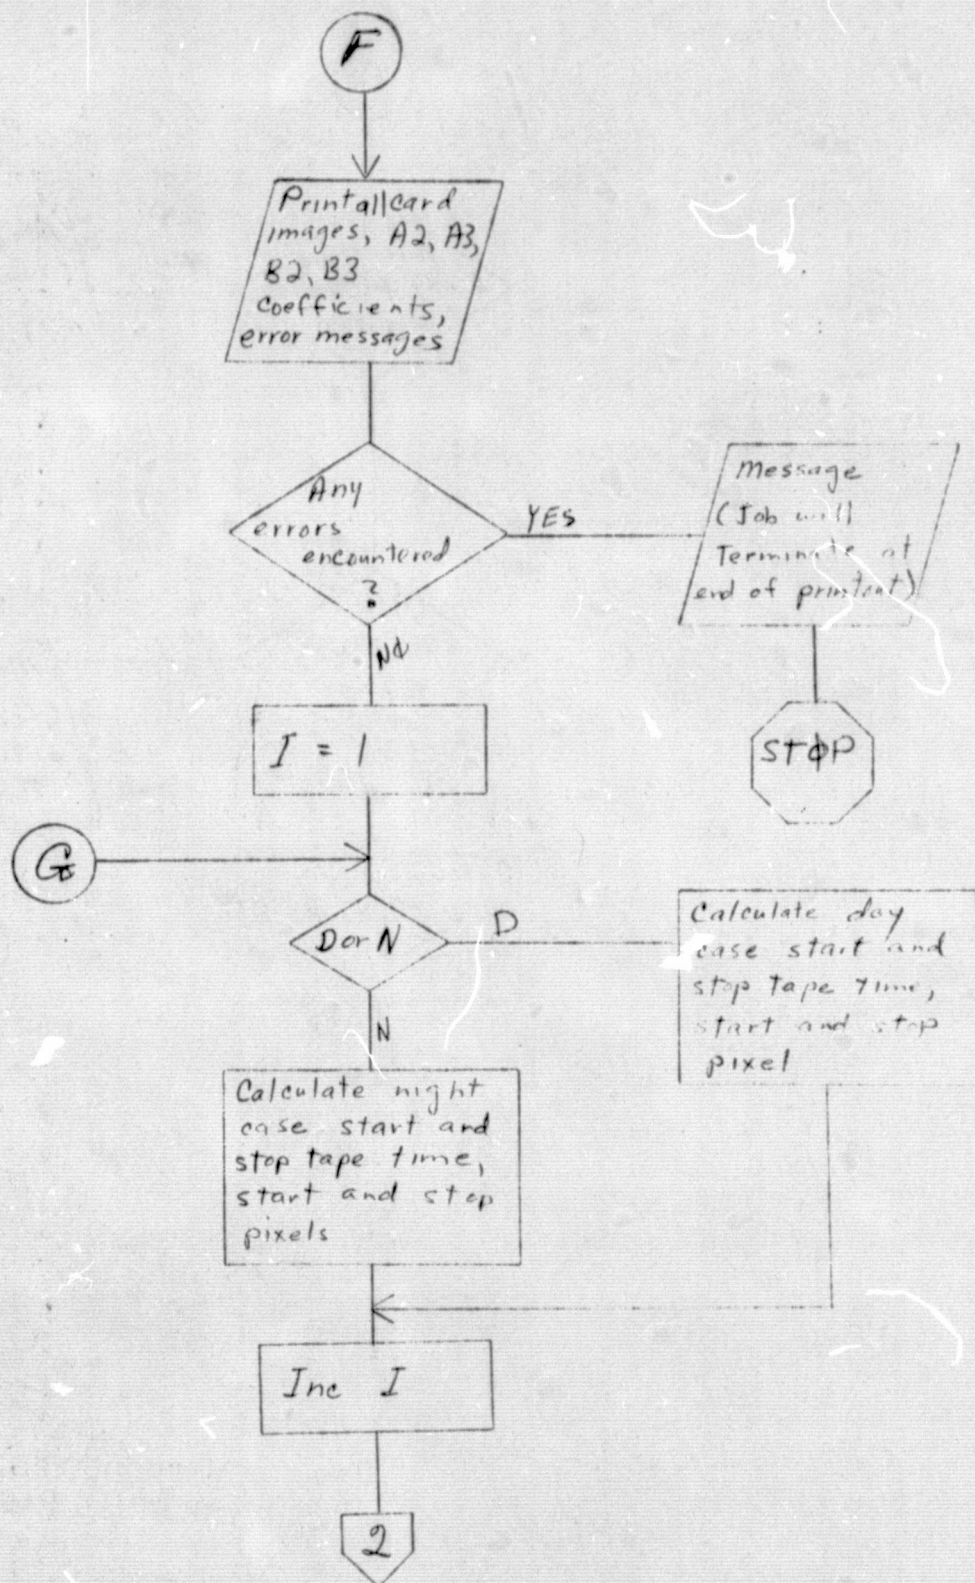 F
Print all card
images, A2, A3,
B2, B3
coefficients,
error messages
Any
errors
encountered
?
YES
Message
(Job will
Terminate at
end of printout)
STØP
NØ
I = 1
G
D or N
D
Calculate day
case start and
stop tape time,
start and stop
pixel
N
Calculate night
case start and
stop tape time,
start and stop
pixels
Inc I
2